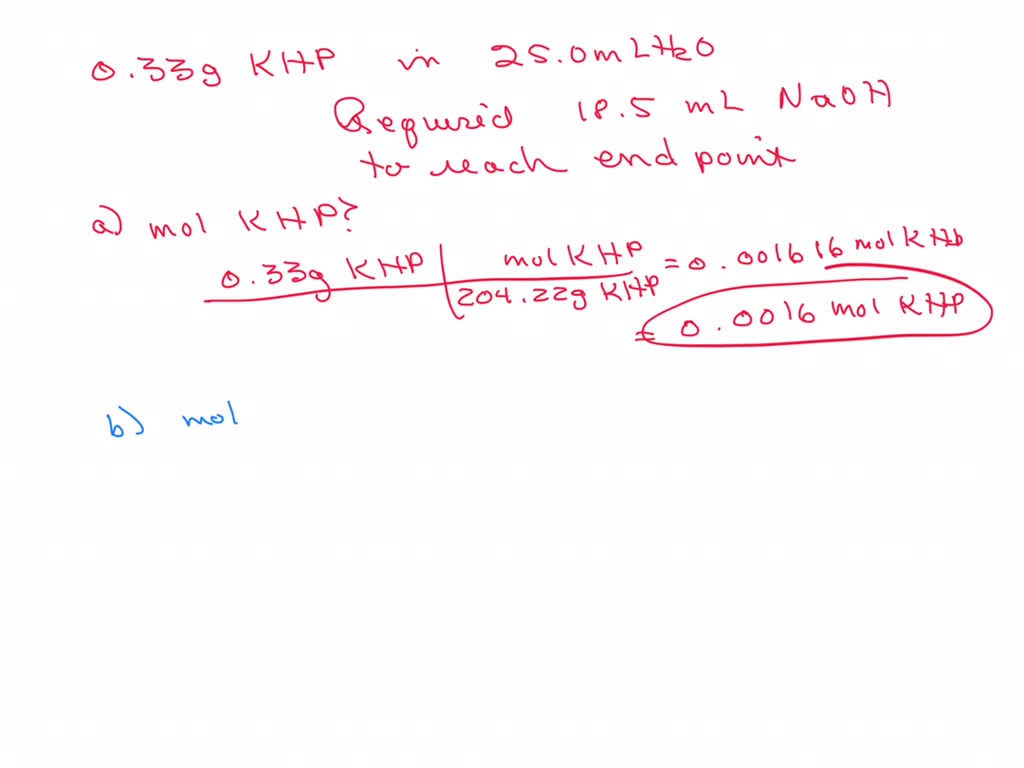 0.33g KHP in 25.0mL H2O
Required 18.5 mL NaOH
to reach end point
a) mol KHP?
0.33g KHP | mol KHP = 0.001616 mol KHP
204.22g KHP
= 0.0016 mol KHP
b) mol